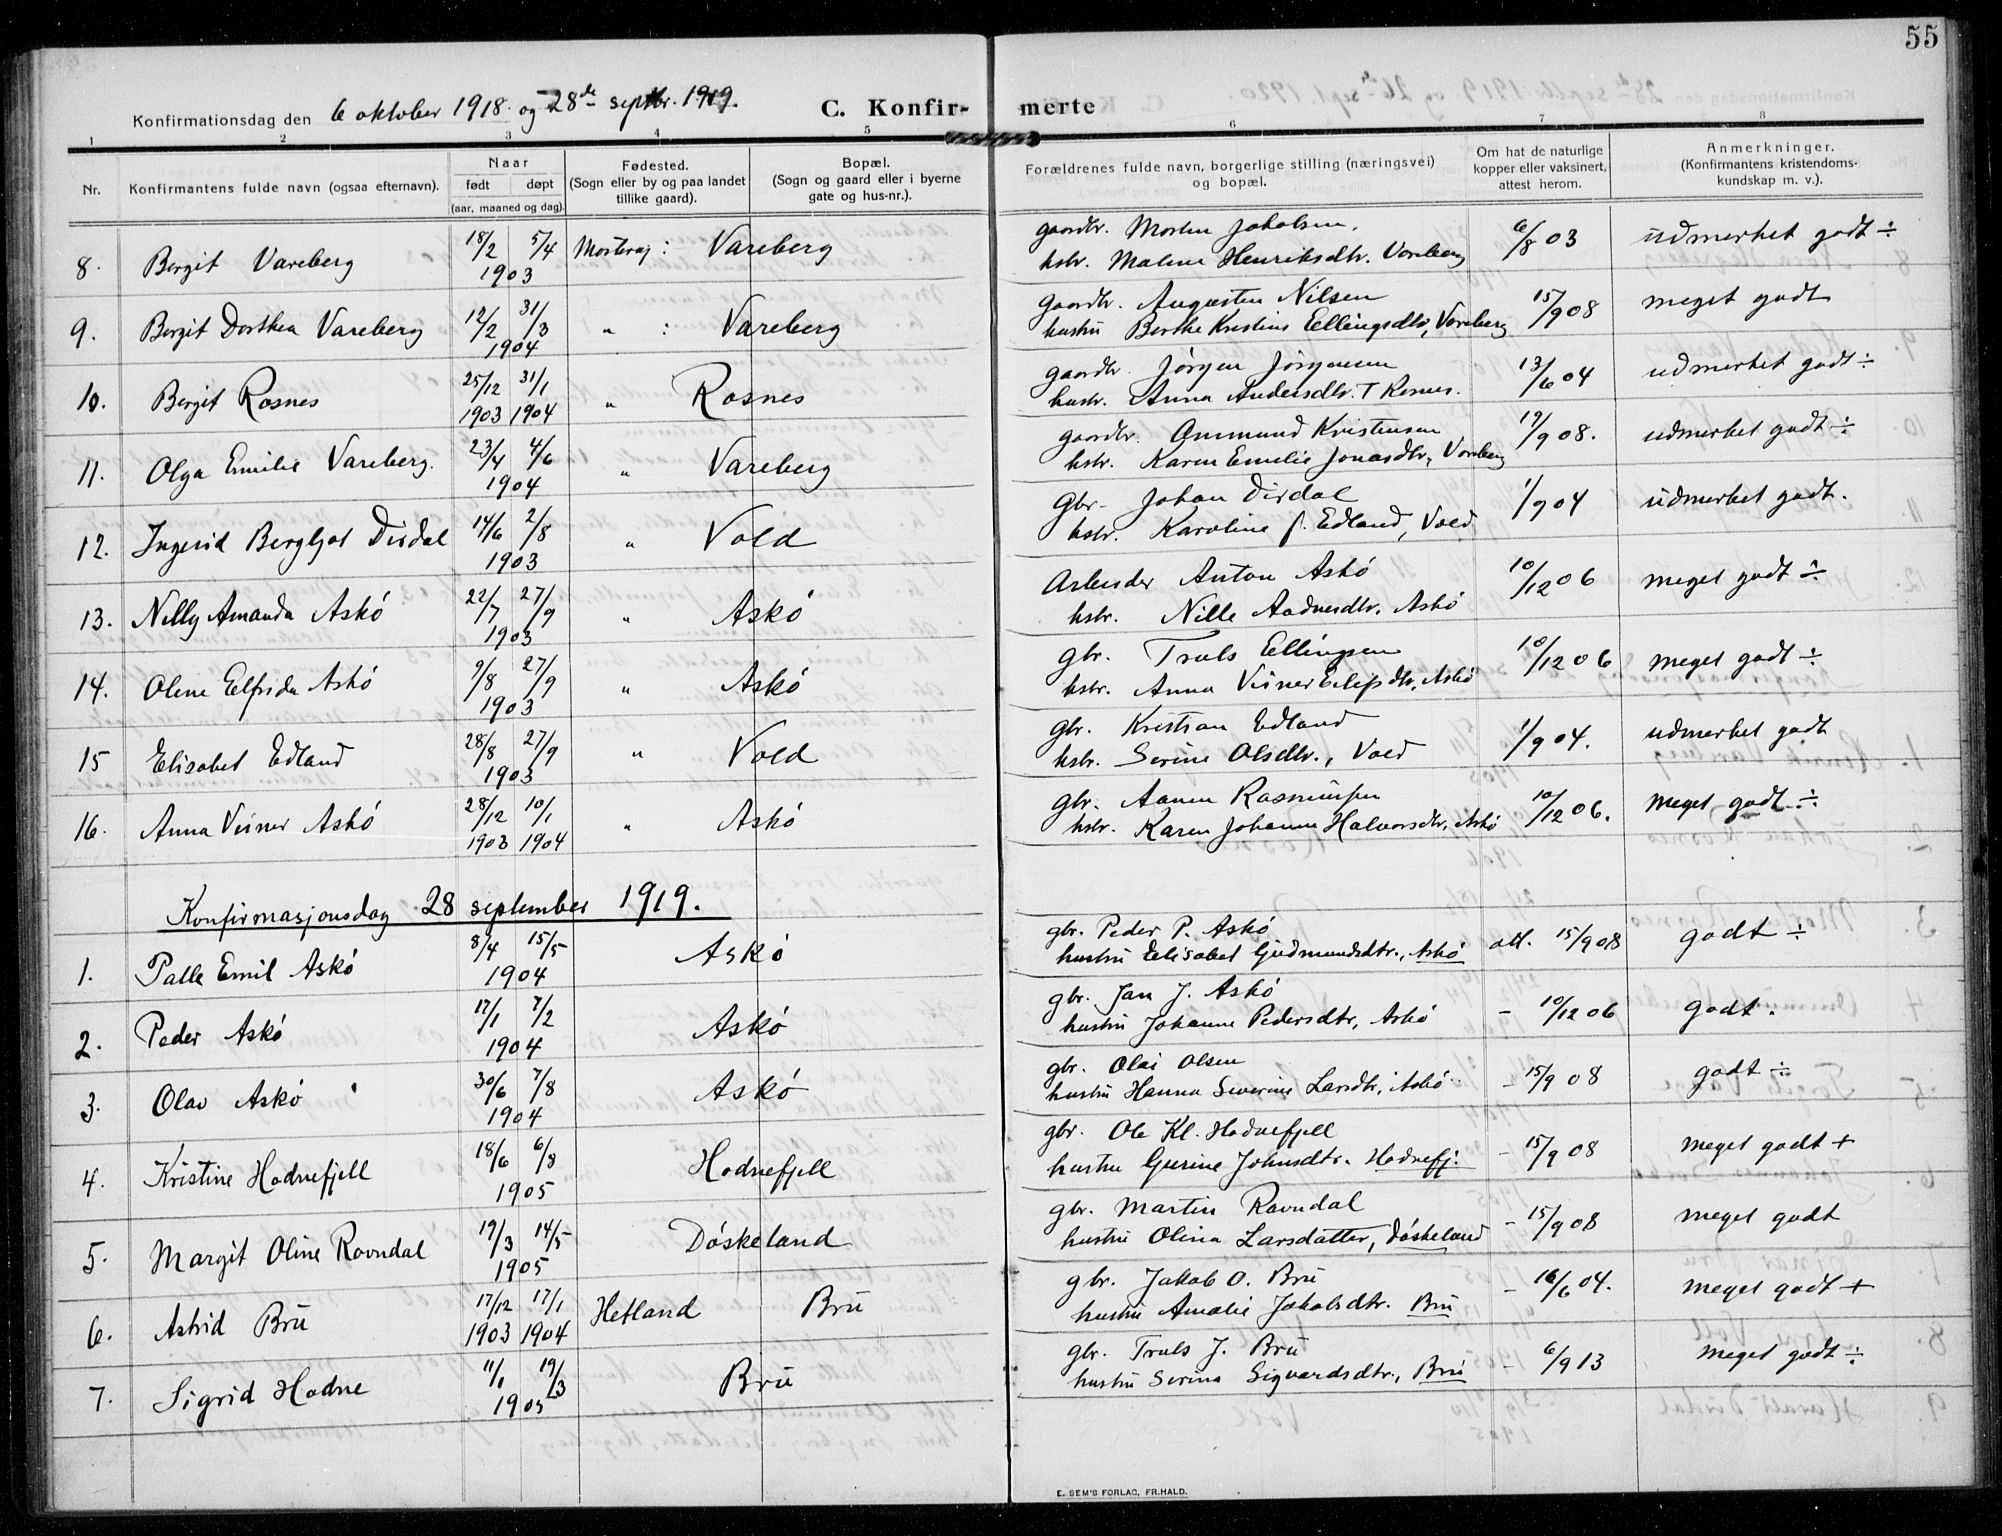 55
Konfirmationsdag den 6 oktober 1918 og 28de septbr. 1919. C. Konfir- merte
1 2 3 4 5 6 7 8
Nr.
Konfirmantens fulde navn (ogsaa efternavn).
Naar
født døpt
(aar, maaned og dag).
Fødested.
(Sogn eller by og paa landet
tillike gaard).
Bopæl.
(Sogn og gaard eller i byerne
gate og hus-nr.).
Forældrenes fulde navn, borgerlige stilling (næringsvei)
og bopæl.
Om hat de naturlige
kopper eller vaksinert,
attest herom.
Anmerkninger.
(Konfirmantens kristendoms-
kundskap m. v.).
18/2 5/4 gaardbr. Morten Jakobsen.
8. Bergit Vareberg 1903 Mosterøy : Vareberg hstr. Malene Henriksdtr. Vareberg 6/8 03 udmerket godt ÷
12/2 31/3 Gaardbr. Augusten Nilsen
9. Bergit Dorthea Vareberg 1904 " : Vareberg hustru Berthe Kristine Ellingsdtr, Vareberg 15/9 08 meget godt
25/12 31/1 gaardbr. Jörgen Jörgensen
10. Bergit Rosnes 1903 1904 " Rosnes hustr. Anna Andersdtr. 13/6 04 udmerket godt ÷
23/4 4/6 gaardbr. Ommund Kristensen
11. Olga Emilie Vareberg. 1904 " Vareberg hstr. Karen Emelie Jonasdtr, Vareberg 19/9 08. udmerket godt ÷
14/6 2/8 Gbr. Johan Dirdal
12. Ingerid Bergljot Dirdal 1903 " Vold hstr. Karoline f. Edland, Vold 1/9 04 udmerket godt.
22/7 27/9 Arbeider Anton Askö
13. Nelly Amanda Askö 1903 " Askö hstr. Nille Aadnesdtr. Askö 10/12 06 meget godt ÷
9/8 27/9 gbr. Truls Ellingsen
14. Olene Elfrida Askö 1903 " Askö hstr. Anna Viiner, Askö 10/12 06 meget godt ÷
28/8 27/9 gbr. Kristian Edland
15 Elisabet Edland 1903 " Vold hstr. Serine Olsdtr., Vold 1/9 04. udmerket godt
28/12 10/1 gbr. Rasmussen
16. Anna Viiner Askö 1903 1904 " Askö hstr. Karen Johanne Halvorsdtr, Askö 10/12 06. meget godt ÷
Konfirmasjonsdag 28 september 1919.
8/4 15/5 gbr. Peder P. Askö
1. Palle Emil Askö 1904 Askö hustru Elisabet Gudmundsdtr., Askö att. 15/9 08 godt ÷
17/1 7/2 gbr. Jan J. Askö
2. Peder Askö 1904 Askö hustru Johanne Pedersdtr, Askö - 10/12 06 godt.
30/6 7/8 gbr. Olai Olsen
3. Olav Askö 1904 Askö hustru Hanna Severine Larsdtr, Askö - 15/9 08 godt ÷
18/6 6/8 gbr. Ole Kl. Hodnefjell
4. Kristine Hodnefjell 1905 Hodnefjell hustru Gurine Johnsdtr. Hodnefj. - 15/9 08 meget godt +
19/3 14/5 gbr. Martin Ravndal
5. Margit Oline Ravndal 1905 Döskeland hustru Olina Larsdatter, Döskeland - 15/9 08 meget godt
17/12 17/1 gbr. Jakob O. Bru
6. Astrid Bru 1903 1904 Hetland Bru hustru Amalie Jakobsdtr. Bru - 16/6 04. meget godt +
11/1 19/3 gbr. Truls J. Bru
7. Sigrid Hodne 1905 Bru hustru Serina Sigvardsdtr., Bru - 6/9 13 meget godt ÷
E. SEM'S FORLAG, FR.HALD.